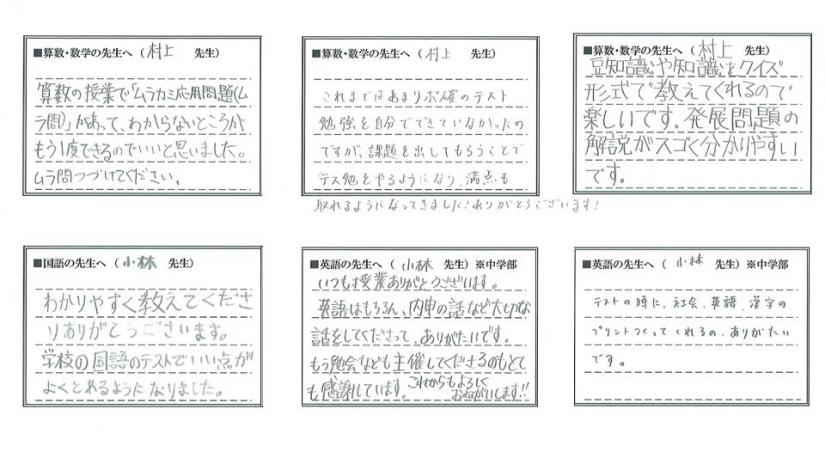 ■算数・数学の先生へ（村上　先生）
算数の授業で「ムラカミ応用問題(ム
ラ問)」があって、わからないところが
もう1度できるのでいいと思いました。
ムラ問つづけてください。
■算数・数学の先生へ（村上　先生）
これまではあまりボ確のテスト
勉強を自分でできていなかったの
ですが、課題を出してもらうことで
テス勉をやるようになり、満点も
取れるようになってきました!ありがとうございます!
■算数・数学の先生へ（村上　先生）
豆知識や知識をクイズ
形式で教えてくれるので
楽しいです。発展問題の
解説がスゴく分かりやすい
です。
■国語の先生へ（小林　先生）
わかりやすく教えてくださ
りありがとうございます。
学校の国語のテストでいい点が
よくとれるようになりました。
■英語の先生へ（小林　先生）※中学部
いつも授業ありがとうございます。
英語はもちろん、内申の話など大切な
話をしてくださって、ありがたいです。
もう勉会なども主催してくださるのもとて
も感謝しています。これからもよろしく
おねがいします!!
■英語の先生へ（小林　先生）※中学部
テストの時に、社会、英語、漢字の
プリントつくってくれるの、ありがたい
です。